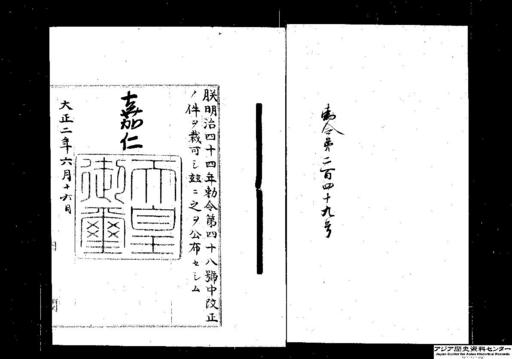 勅令第二百四十九号
朕明治四十四年勅令第四十八號中改正
ノ件ヲ裁可シ茲ニ之ヲ公布セシム
嘉仁
天皇
御璽
大正二年六月十六日
アジア歴史資料センター
Japan Center for Asian Historical Records